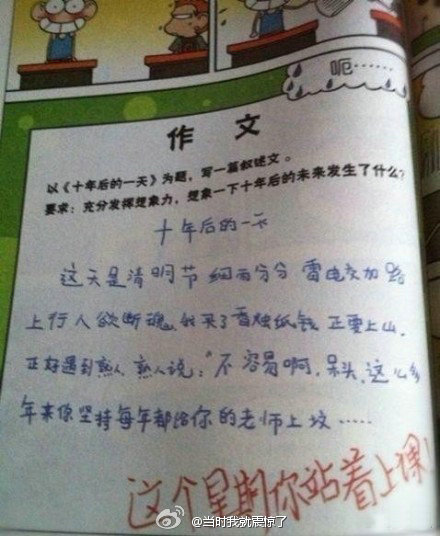 呃……
作 文
以《十年后的一天》为题，写一篇叙述文。
要求：充分发挥想象力，想象一下十年后的未来发生了什么？
十年后的一天
这天是清明节 细雨分分 雷电交加 路
上行人欲断魂，我买了香烛纸钱 正要上山，
正好遇到熟人，熟人说：“不容易啊，呆头，这么多
年来你坚持每年都给你的老师上坟……
这个星期你站着上课！
@当时我就震惊了